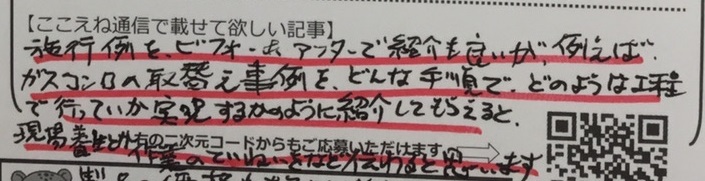 【ここえね通信で載せて欲しい記事】
施行例を、ビフォー&アフターで紹介も良いが、例えば、
ガスコンロの取替え事例を、どんな手順で、どのような工程
で行っていか実況するかのように紹介してもらえると、
現場養生とか
右の二次元コードからもご応募いただけます
作業のていねいさなど伝わると思います